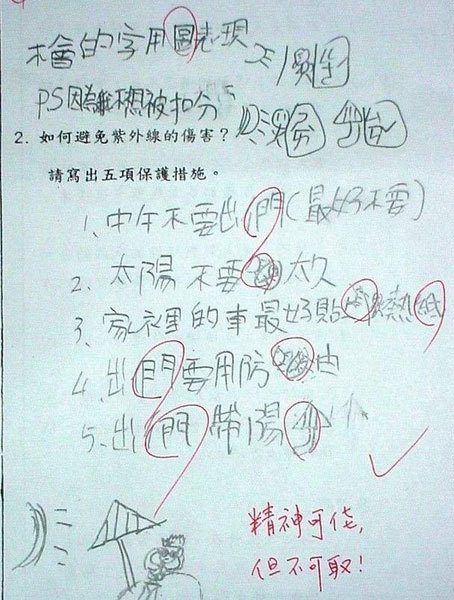 不會的字用圖表現
PS因為誰不想被扣分
2. 如何避免紫外線的傷害？
請寫出五項保護措施。
1、中午不要出門(最好不要)
2、太陽不要 太久
3、家裡的車最好貼 熱紙
4、出門要用防 油
5、出門帶陽
精神可佳，
但不可取！